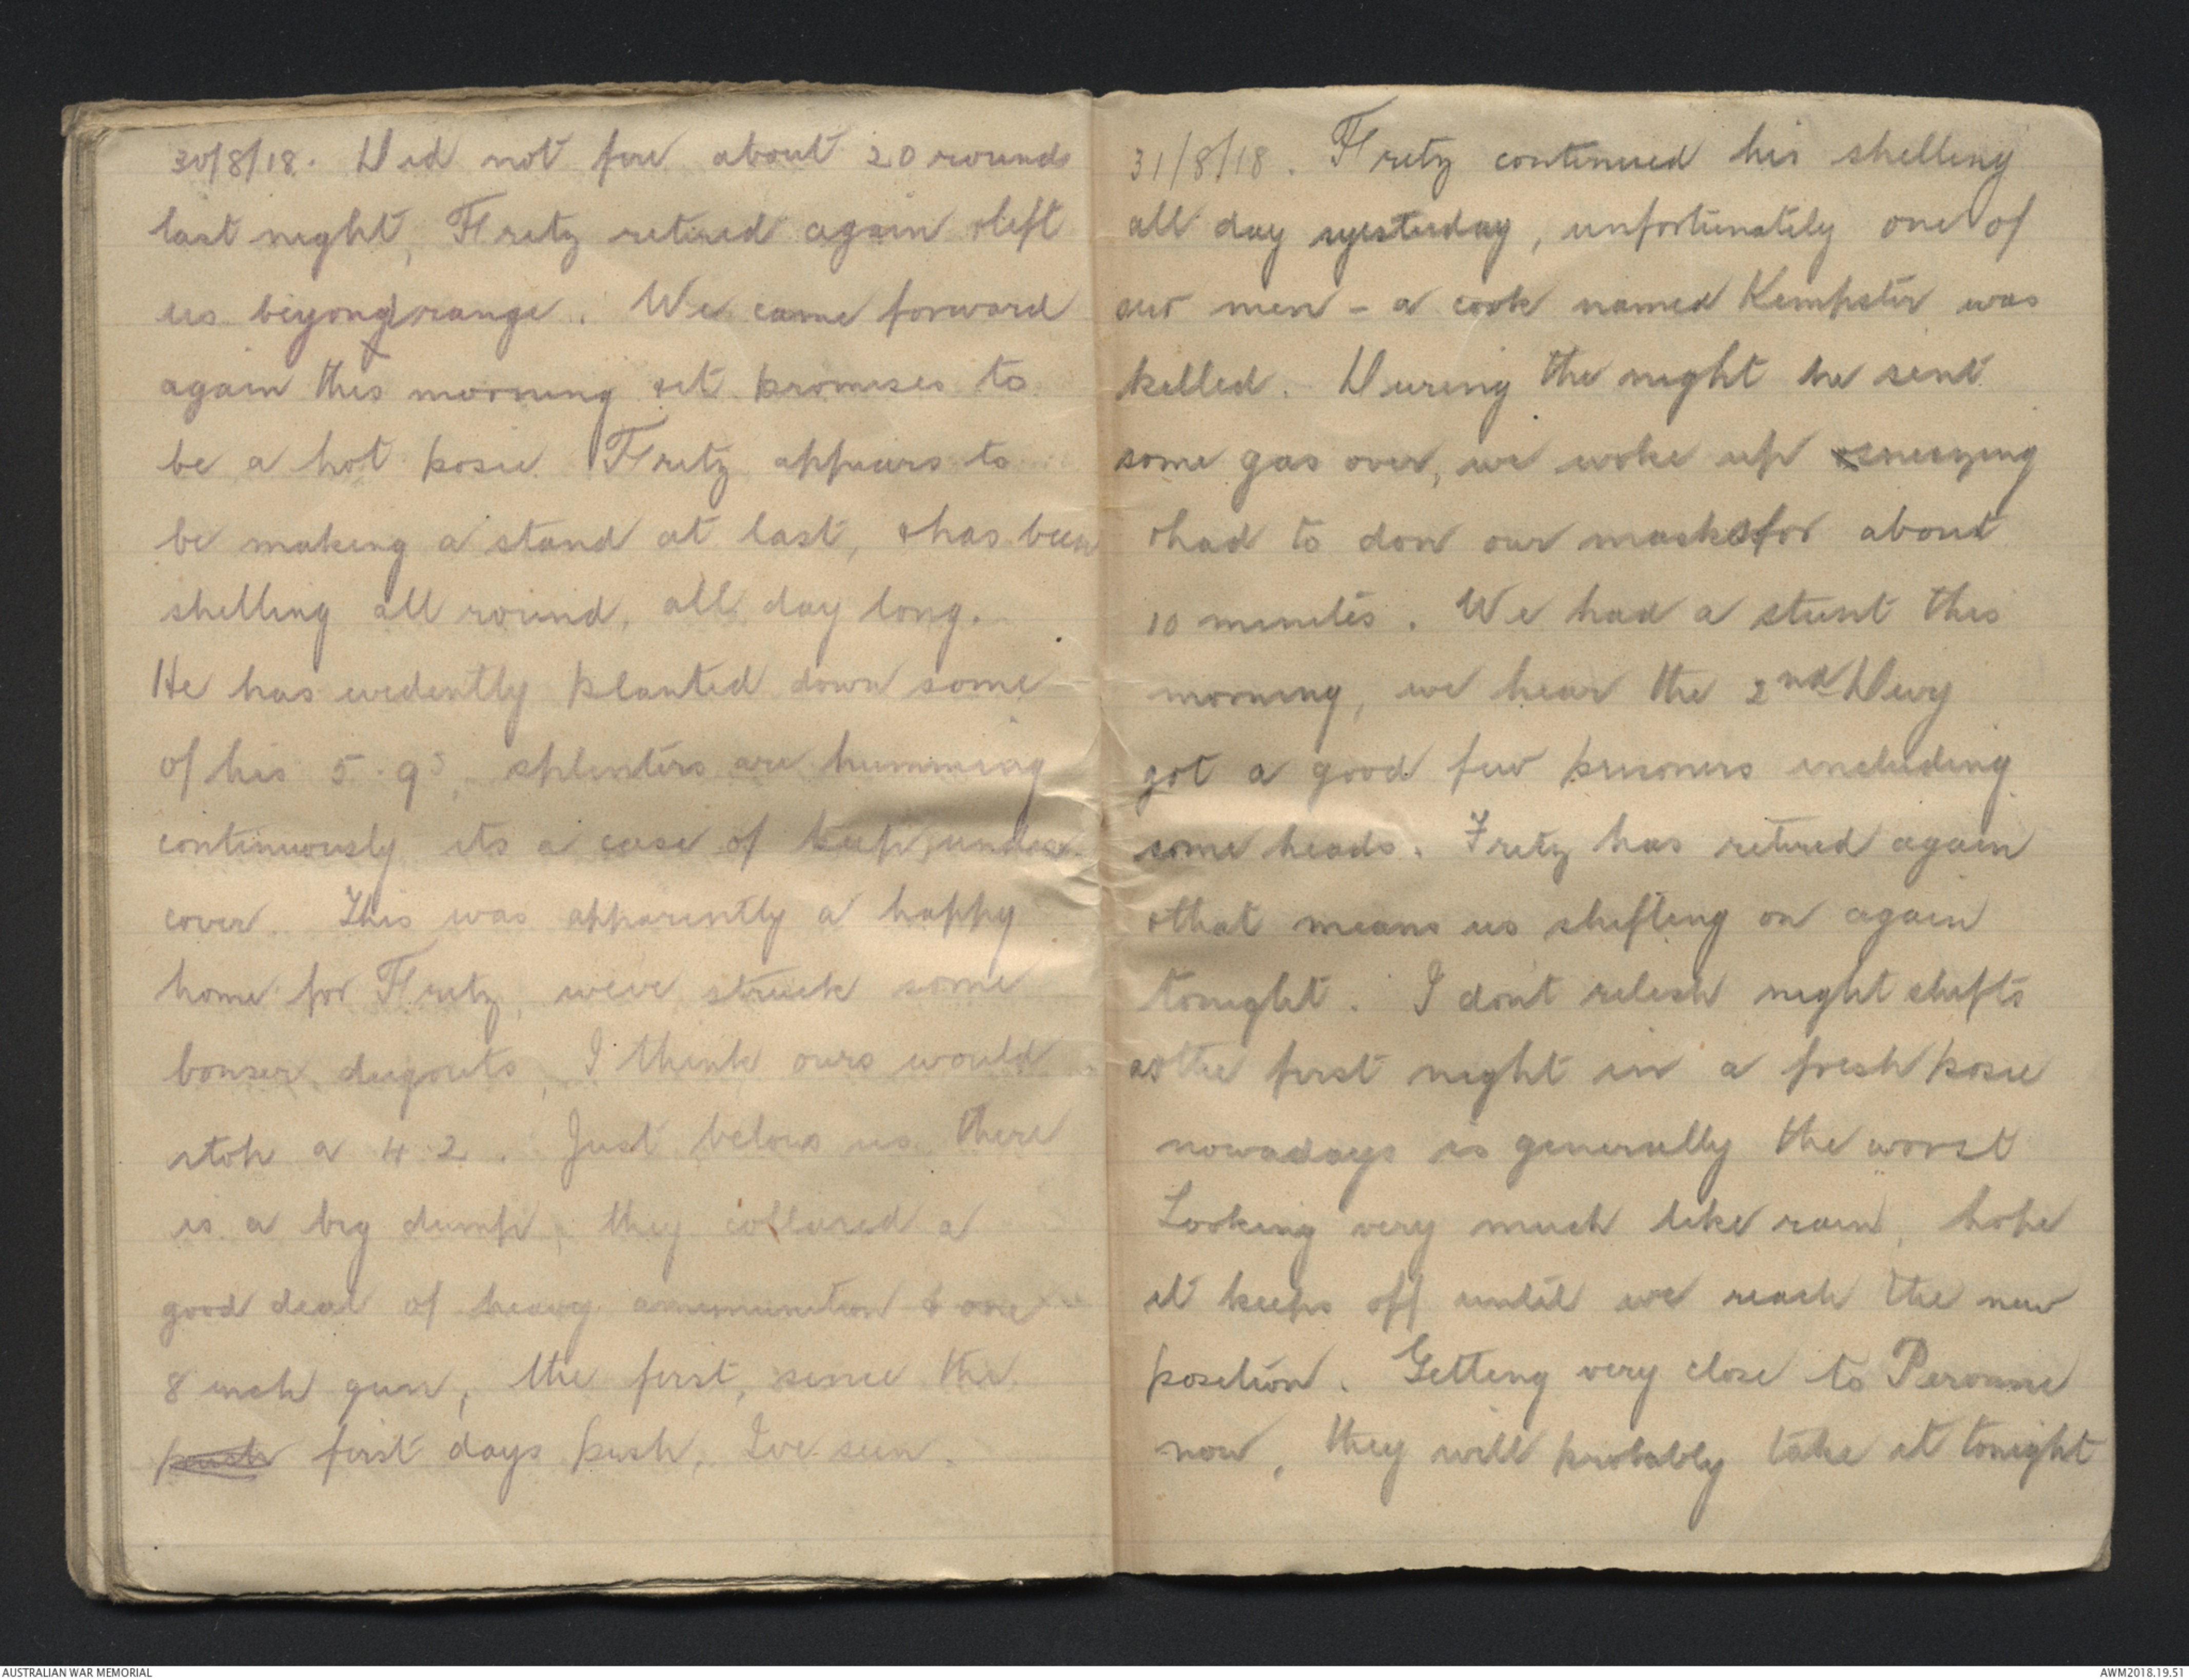 30/8/18. Did not fire about 20 rounds
last night, Fritz retired again & left
us beyond range. We came forward
again this morning & it promises to
be a hot posie. Fritz appears to
be making a stand at last, & has been
shelling all round, all day long.
He has evidently planted down some
of his 5.9s, splinters are humming
continuously its a case of keep under
cover. This was apparently a happy
home for Fritz, weve struck some
bonser dugouts, I think ours would
stop a 4.2. Just below us there
is a big dump, they collared a
good deal of heavy ammunition & one
8 inch gun, the first, since the
push first days push, Ive seen.
31/8/18. Fritz continued his shelling
all day yesterday, unfortunately one of
our men - a cook named Kempster was
killed. During the night he sent
some gas over, we woke up sneezing
& had to don our masks for about
10 minutes. We had a stunt this
morning, we hear the 2nd Divy
got a good few prisoners including
some heads. Fritz has retired again
& that means us shifting on again
tonight. I dont relish night shifts
as the first night in a fresh posie
nowadays is generally the worst
Looking very much like rain, hope
it keeps off until we reach the new
position. Getting very close to Peronne
now, they will probably take it tonight
AUSTRALIAN WAR MEMORIAL
AWM2018.19.51